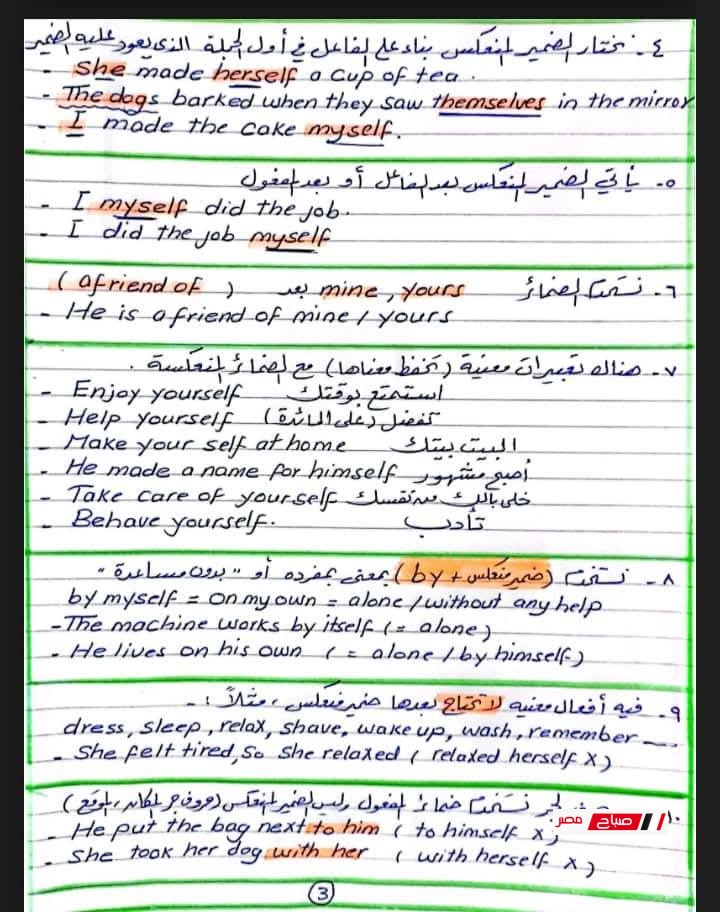 ٤- نختار الضمير المنعكس بناء على الفاعل في أول الجملة الذى يعود عليه الضمير
- She made herself a cup of tea.
- The dogs barked when they saw themselves in the mirror
- I made the cake myself.
٥- يأتي الضمير المنعكس بعد الفاعل أو بعد المفعول
- I myself did the job.
- I did the job myself
٦- نستخدم الضمائر mine, yours بعد (a friend of)
- He is a friend of mine / yours
٧- هناك تعبيرات معينة (تحفظ معناها) مع الضمائر المنعكسة.
- Enjoy yourself استمتع بوقتك
- Help yourself تفضل (على المائدة)
- Make your self at home البيت بيتك
- He made a name for himself أصبح مشهور
- Take care of yourself خلى بالك من نفسك
- Behave yourself. تأدب
٨- نستخدم (ضمير منعكس + by) بمعنى بمفرده أو "بدون مساعدة"
by myself = on my own = alone / without any help
- The machine works by itself (= alone)
- He lives on his own (= alone / by himself)
٩- فيه أفعال معينه لا تحتاج بعدها ضمير منعكس، مثلاً :-
dress, sleep, relax, shave, wake up, wash, remember ....
- She felt tired, So She relaxed (relaxed herself X)
١٠- الجر نستخدم ضمائر المفعول وليس الضمير المنعكس (حروف جر المكان، الموقع)
- He put the bag next to him (to himself X)
- She took her dog with her (with herself X)
صباح مصر
3